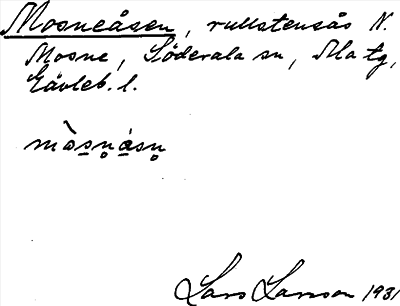 Mosneåsen, rullstensås N.
Mosne, Söderala sn, Ala tg,
Gävleb. l.
mò̀sn̥åsn̥
Lars Larsson 1931